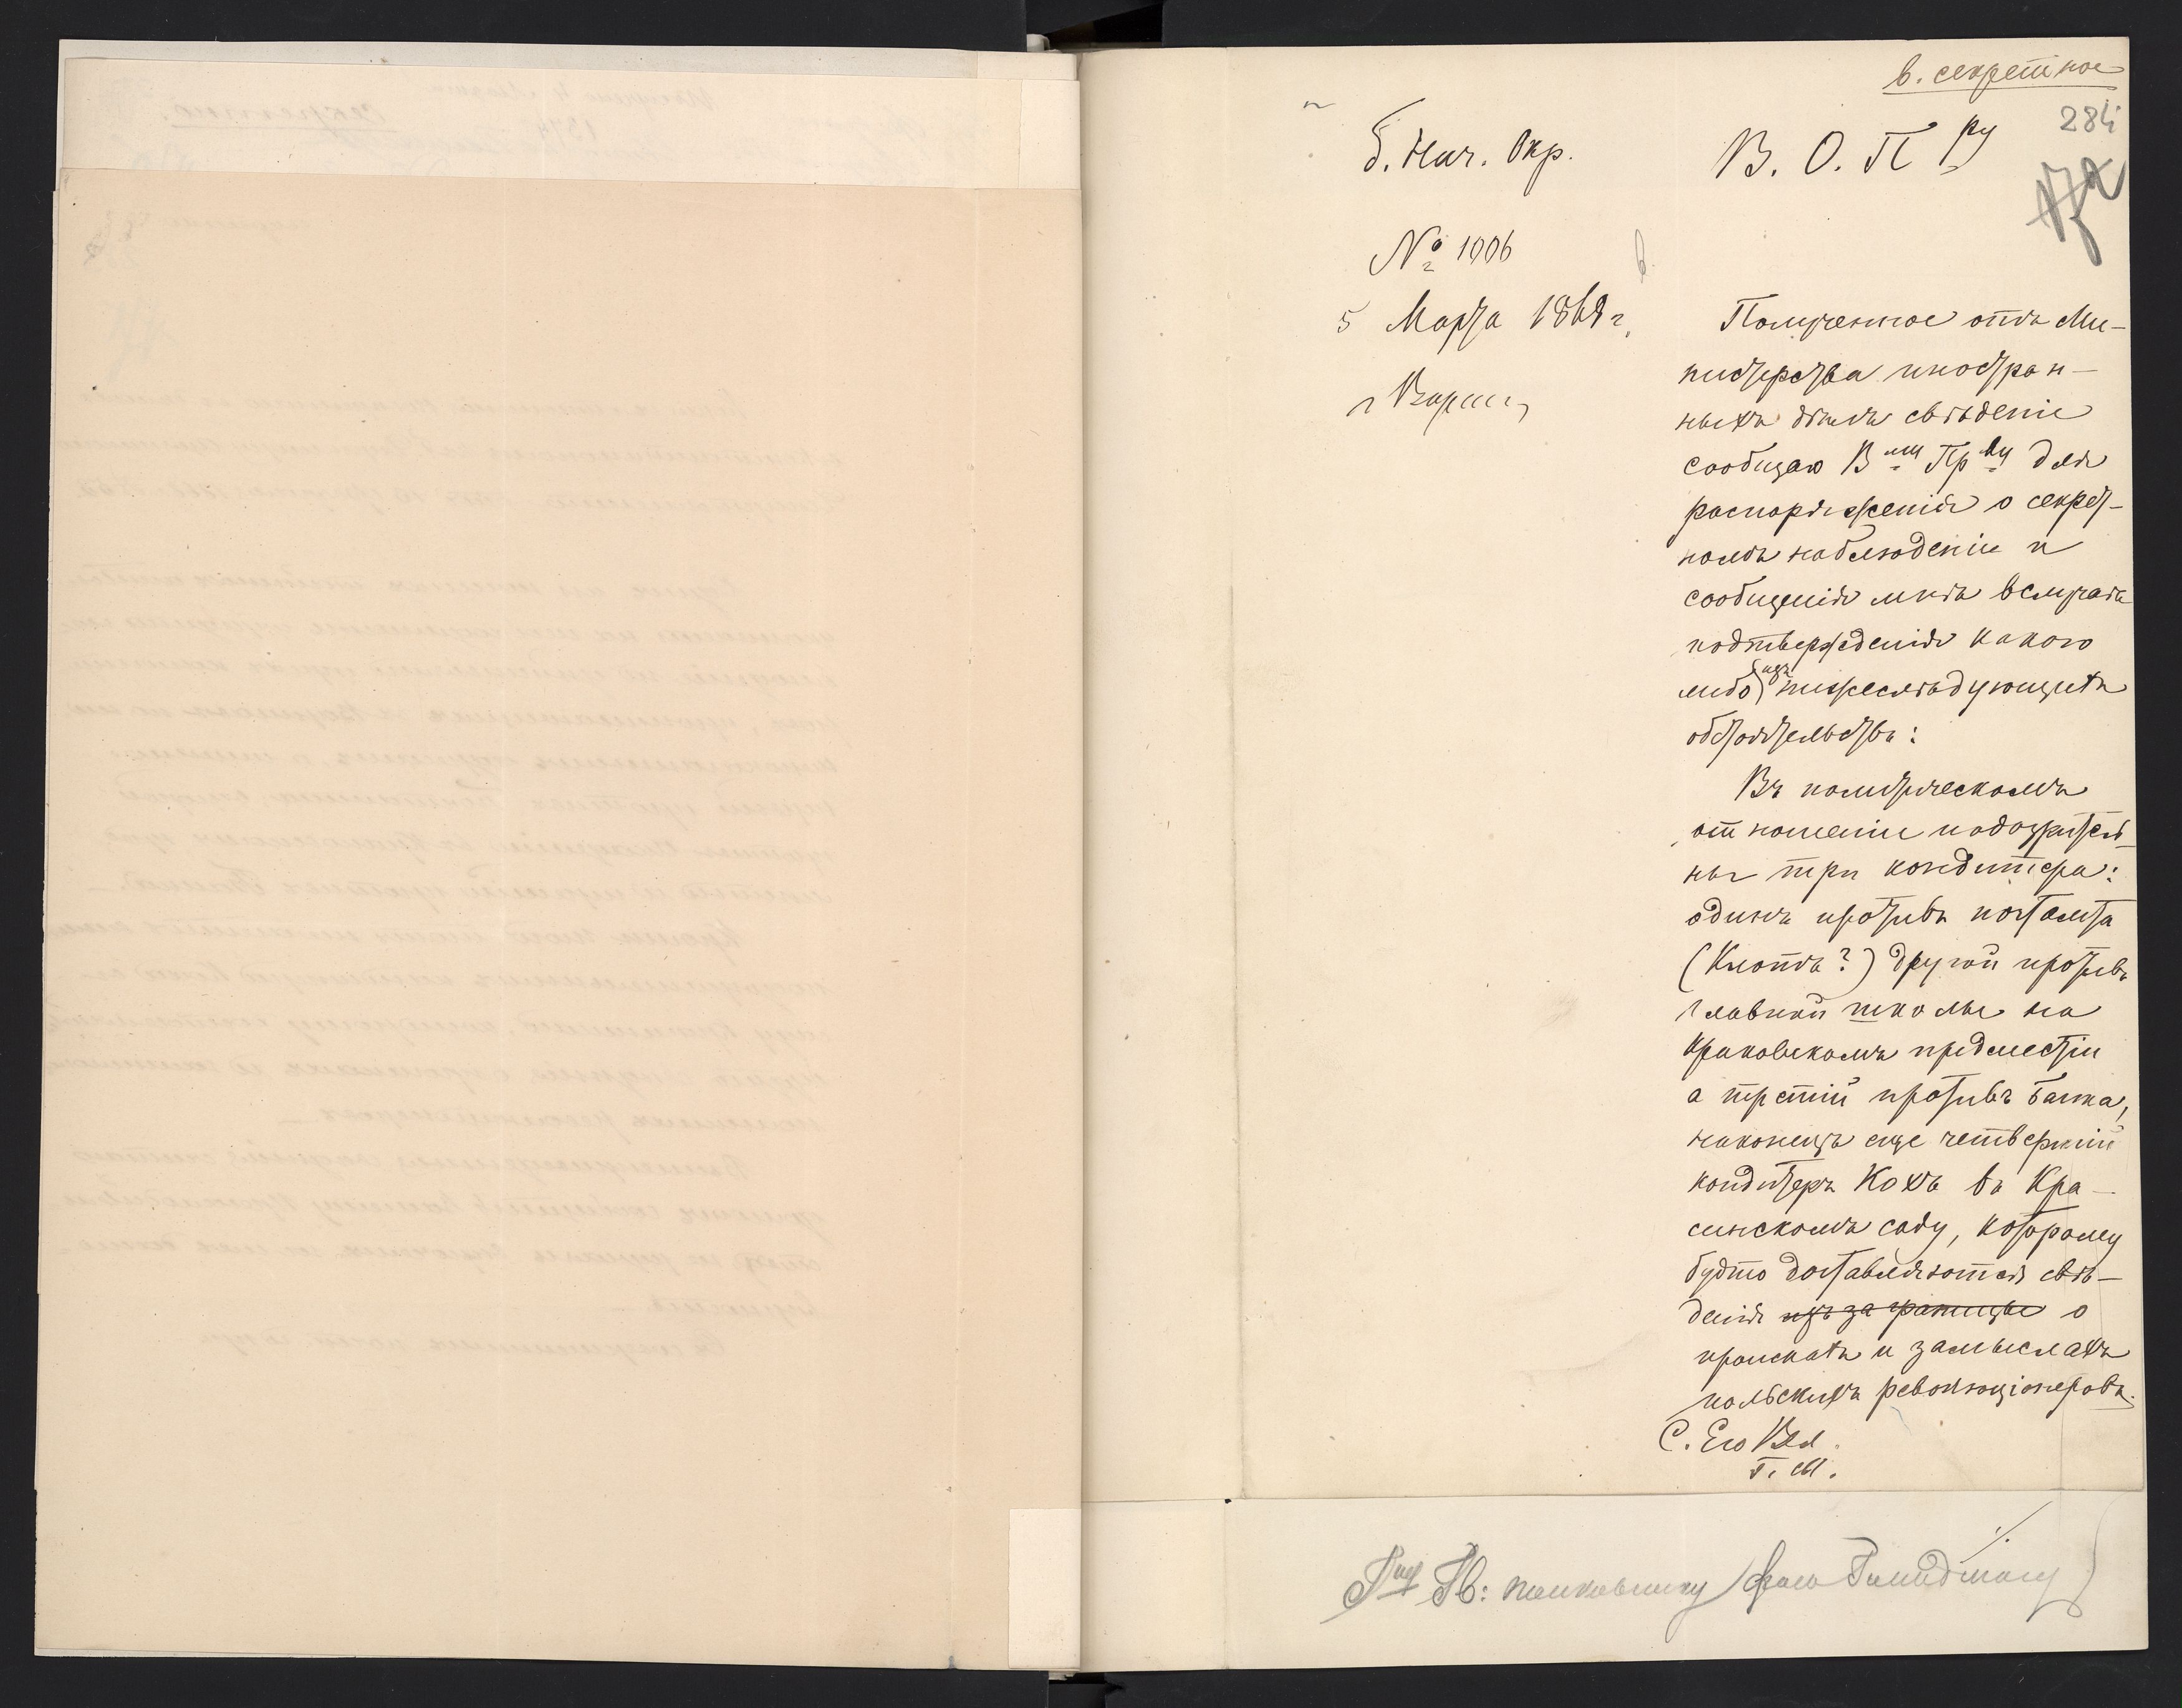 в. секретное
284
172
б. Нач. Окр.
В. О. П ру
№ 1006
5 Марта 1868 г.
г Варш
Полученное отъ Ми-
нистерства иностран-
ныхъ дѣлъ свѣденіе
сообщаю В му Пр ву для
распоряженія о секрет-
номъ наблюденіи и
сообщенія мнѣ в случаѣ
подтвержденія какого
либо изъ нижеслѣдующихъ
обстоятельствъ:
Въ политическомъ
отношеніи подозритель-
ны три кондитера:
одинъ противъ почтамта
(Клотъ?) другой противъ
главной школы на
Краковскомъ предместіи
а третій противъ Банка,
наконецъ еще четвертый
кондитеръ Кохъ въ Кра-
синскомъ саду, которому
будто доставляются свѣ-
денія изъ за границы о
проискахъ и замыслахъ
польскихъ революціонеровъ.
С. Его Вел.
Г. М.
Гну Гв: полковнику фонъ